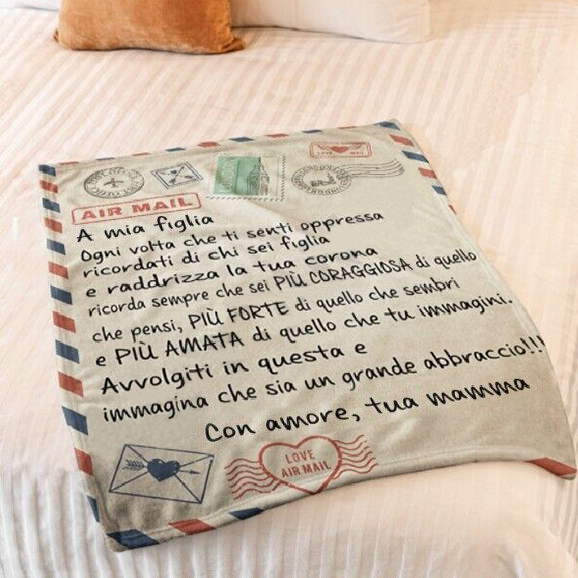 AIR MAIL
A mia figlia
Ogni volta che ti senti oppressa
ricordati di chi sei figlia
e raddrizza la tua corona
ricorda sempre che sei PIÙ CORAGGIOSA di quello
che pensi, PIÙ FORTE di quello che sembri
e PIÙ AMATA di quello che tu immagini.
Avvolgiti in questa e
immagina che sia un grande abbraccio!!!
Con amore, tua mamma
LOVE
AIR MAIL